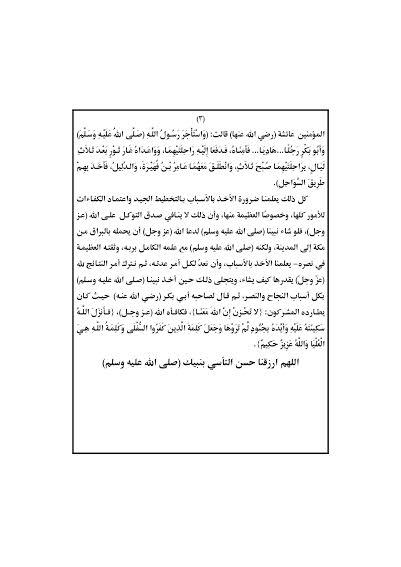 (٣)
المؤمنين عائشة (رضي الله عنها) قالت: (وَاسْتَأْجَرَ رَسُولُ اللَّهِ (صَلَّى اللهُ عَلَيْهِ وَسَلَّمَ)
وأَبُو بَكْرٍ رَجُلًا...هَادِيًا... فأمِنَاهُ، فَدَفَعَا إِلَيْهِ رَاحِلَتَيْهِمَا، وَوَاعَدَاهُ غَارَ ثَوْرٍ بَعْدَ ثَلَاثِ
لَيَالٍ، بِرَاحِلَتَيْهِمَا صُبْحَ ثَلَاثٍ، وَانْطَلَقَ مَعَهُمَا عَامِرُ بْنُ فُهَيْرَةَ، وَالدَّلِيلُ، فَأَخَذَ بِهِمْ
طَرِيقَ السَّوَاحِلِ).
كل ذلك يعلمنا ضرورة الأخذ بالأسباب بالتخطيط الجيد واعتماد الكفاءات
للأمور كلها، وخصوصًا العظيمة منها، وأن ذلك لا ينافي صدق التوكل على الله (عز
وجل)، فلو شاء نبينا (صلى الله عليه وسلم) لدعا الله (عز وجل) أن يحمله بالبراق من
مكة إلى المدينة، ولكنه (صلى الله عليه وسلم) مع علمه الكامل بربه، وثقته العظيمة
في نصره- يعلمنا الأخذ بالأسباب، وأن نعدّ لكل أمر عدته، ثم نترك أمر النتائج لله
(عزّ وجلّ) يقدرها كيف يشاء، ويتجلى ذلك حين أخذ نبينا (صلى الله عليه وسلم)
بكل أسباب النجاح والنصر، ثم قال لصاحبه أبي بكر (رضي الله عنه) حيث كان
يطارده المشركون: {لا تَحْزَنْ إِنَّ اللهَ مَعَنَا}، فكافأه الله (عز وجل)، {فَأَنْزَلَ اللَّهُ
سَكِينَتَهُ عَلَيْهِ وَأَيَّدَهُ بِجُنُودٍ لَمْ تَرَوْهَا وَجَعَلَ كَلِمَةَ الَّذِينَ كَفَرُوا السُّفْلَى وَكَلِمَةُ اللَّهِ هِيَ
الْعُلْيَا وَاللَّهُ عَزِيزٌ حَكِيمٌ}.
اللهم ارزقنا حسن التأسي بنبيك (صلى الله عليه وسلم)